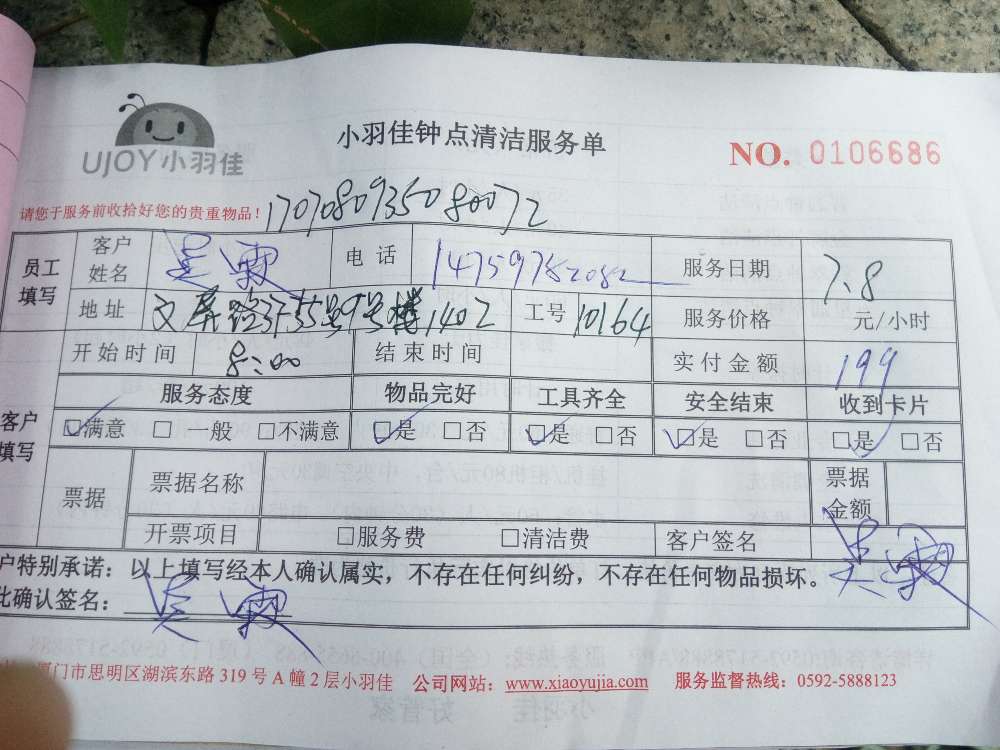 UJOY小羽佳
小羽佳钟点清洁服务单
NO. 0106686
请您于服务前收拾好您的贵重物品！
1707080935080072
员工填写 客户姓名 吴霖 电话 14759752082 服务日期 7.8
地址 文屏路 1402 工号 10164 服务价格 元/小时
开始时间 8:00 结束时间 实付金额 199
客户填写 服务态度 物品完好 工具齐全 安全结束 收到卡片
☑满意 □一般 □不满意 ☑是 □否 ☑是 □否 ☑是 □否 ☑是 □否
票据 票据名称 票据金额
开票项目 □服务费 □清洁费 客户签名 吴霖
户特别承诺：以上填写经本人确认属实，不存在任何纠纷，不存在任何物品损坏。
此确认签名：吴霖
厦门市思明区湖滨东路 319 号 A 幢 2 层小羽佳 公司网站：www.xiaoyujia.com 服务监督热线：0592-5888123